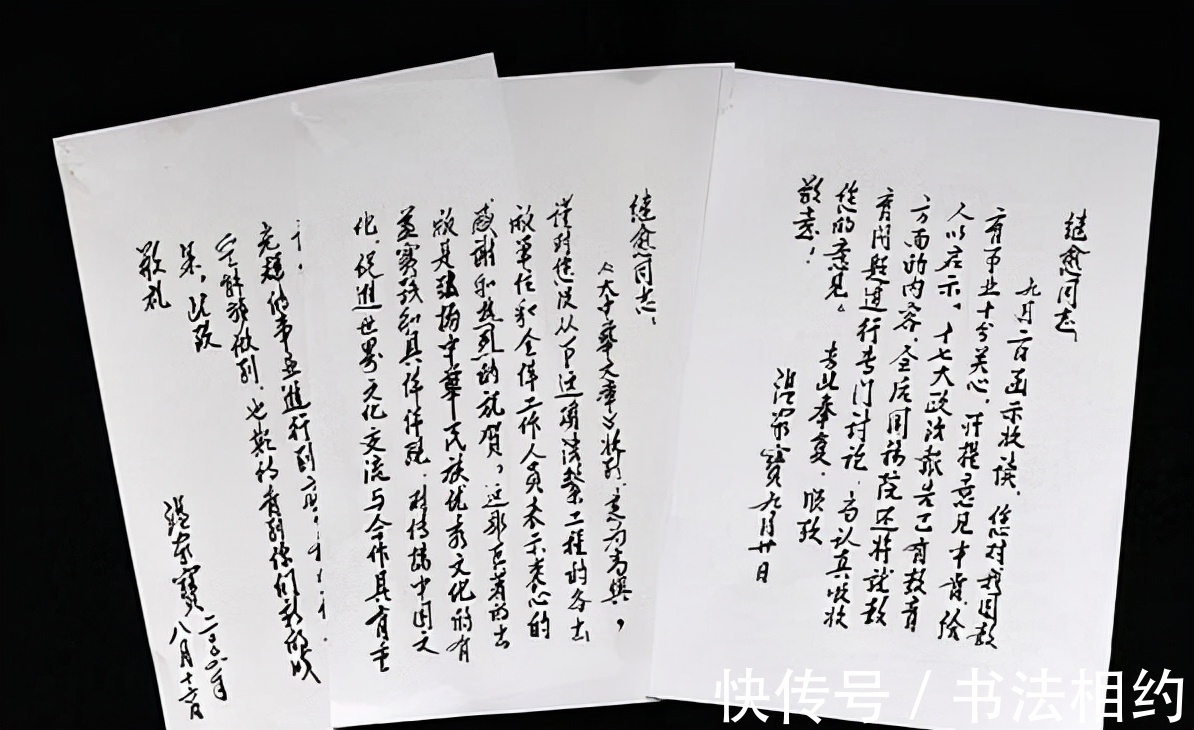 继愈同志:
九月二日函示收读。您对我国教
育事业十分关心,所提意见中肯,给
人以启示。十七大政治报告已有教育
方面的内容,会后国务院还将就教
育问题进行专门讨论,当认真吸收
您的意见。专此奉复,顺致
敬意!
温家宝九月廿日
继愈同志:
《大中华文库》
谨对您及从事这项浩繁工程的各出
版单位和全体工作人员表示衷心的
感谢和热烈的祝贺,这部巨著的出
版是弘扬中华民族优秀文化的有
益实践和具体体现,对传播中国文
化,促进世界文化交流与合作具有重
竟这件事业进行到底
能做到,也期盼看到你们新的成
果。此致
敬礼
温家宝 二〇〇六年
八月十六日
快传号 / 书法相约